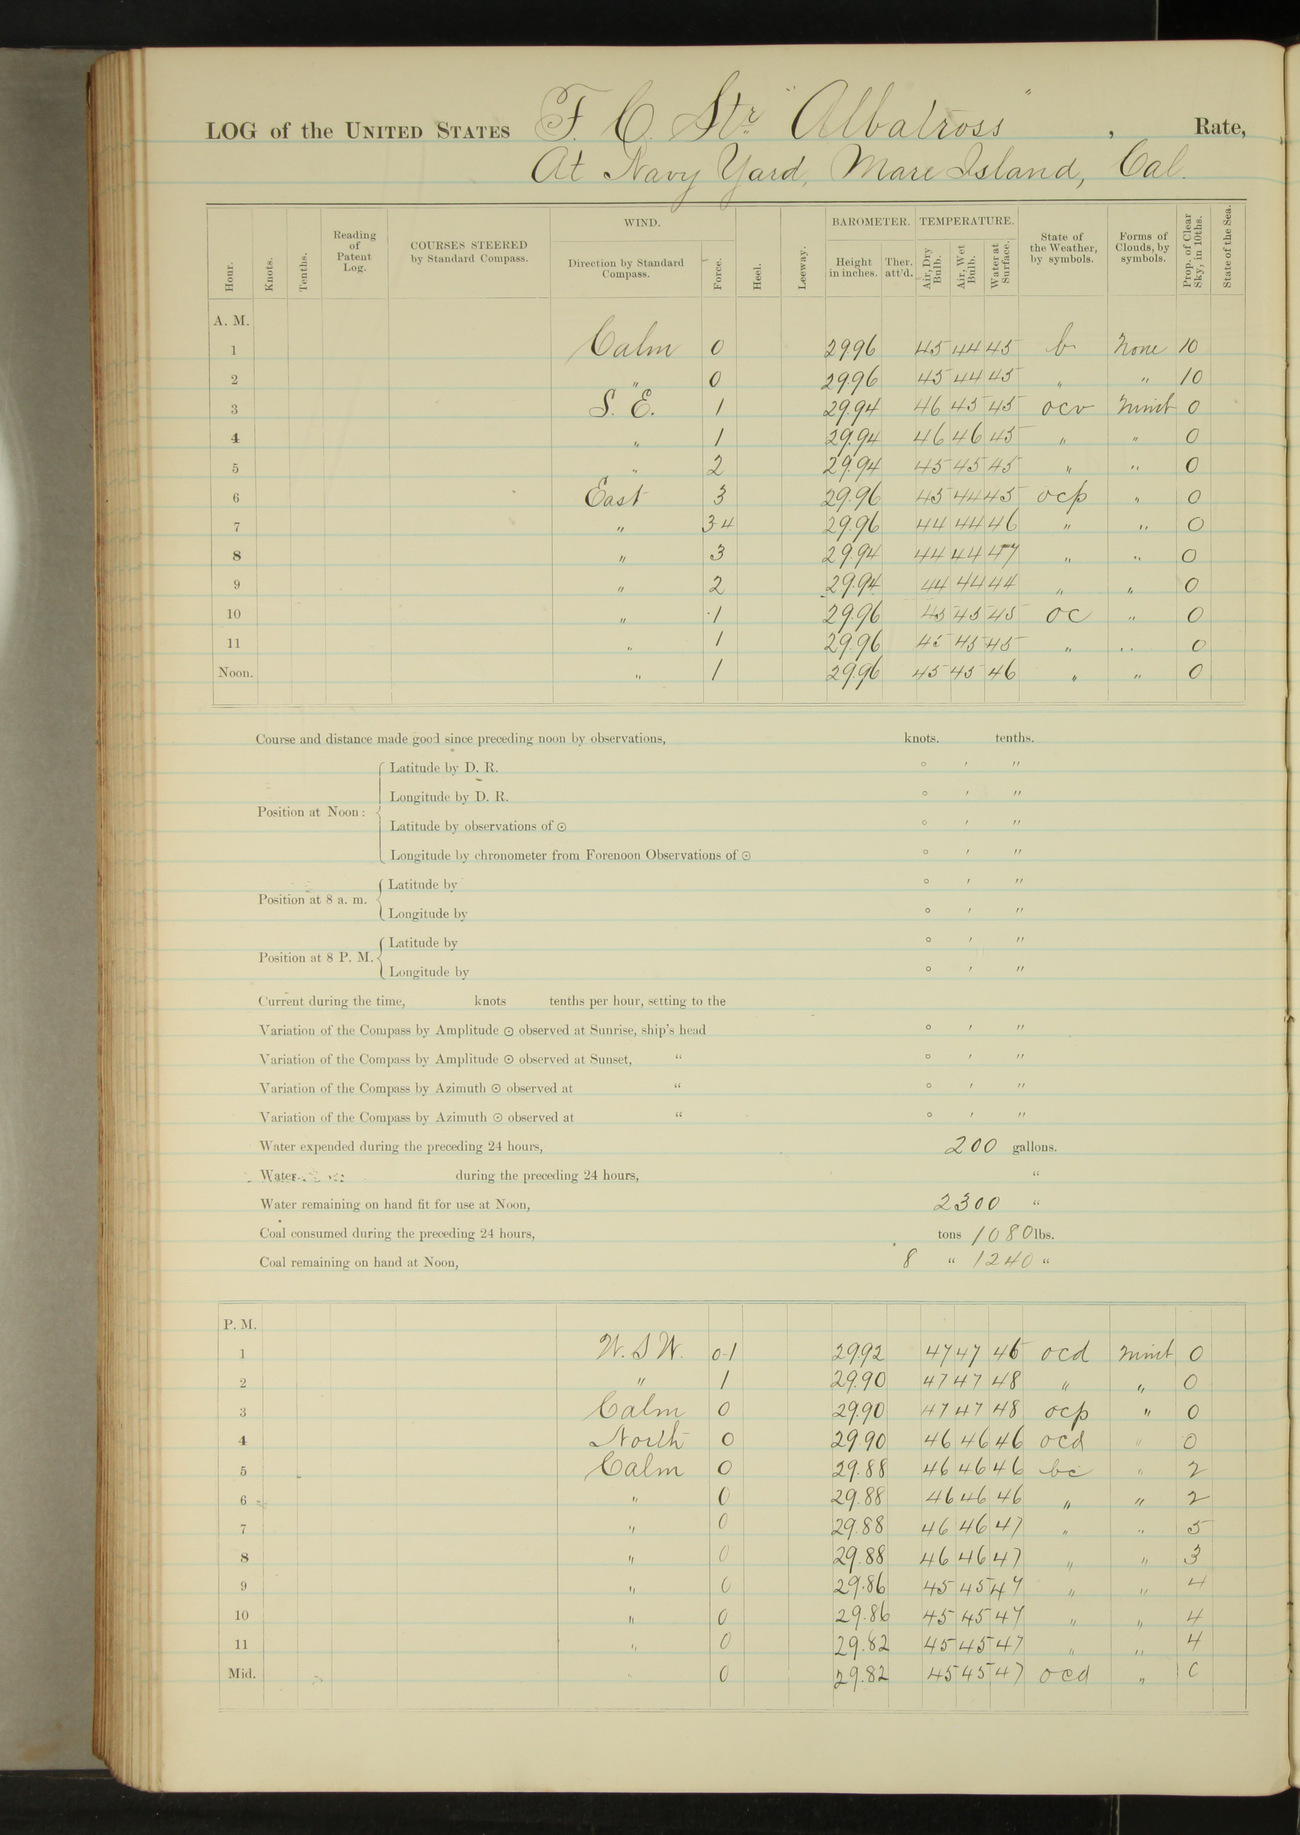 LOG of the UNITED STATES F. C. Str. "Albatross" , Rate,
At Navy Yard, Mare Island, Cal.
Hour. Knots. Tenths. Reading of Patent Log. COURSES STEERED by Standard Compass. WIND. Direction by Standard Compass. Force. Heel. Leeway. BAROMETER. Height in inches. Ther. att'd. TEMPERATURE. Air, Dry Bulb. Air, Wet Bulb. Water at Surface. State of the Weather, by symbols. Forms of Clouds, by symbols. Prop. of Clear Sky, in 10ths. State of the Sea.
A. M.
1 Calm 0 29.96 45 44 45 b None 10
2 " 0 29.96 45 44 45 " " 10
3 S. E. 1 29.94 46 45 45 ocv Nimb 0
4 " 1 29.94 46 46 45 " " 0
5 " 2 29.94 45 45 45 " " 0
6 East 3 29.96 45 44 45 ocp " 0
7 " 3-4 29.96 44 44 46 " " 0
8 " 3 29.94 44 44 47 " " 0
9 " 2 29.94 44 44 44 " " 0
10 " 1 29.96 45 45 45 oc " 0
11 " 1 29.96 45 45 45 " " 0
Noon. " 1 29.96 45 45 46 " " 0
Course and distance made good since preceding noon by observations, knots. tenths.
Position at Noon: Latitude by D. R. ° ′ ″
Longitude by D. R. ° ′ ″
Latitude by observations of ☉ ° ′ ″
Longitude by chronometer from Forenoon Observations of ☉ ° ′ ″
Position at 8 a. m. Latitude by ° ′ ″
Longitude by ° ′ ″
Position at 8 P. M. Latitude by ° ′ ″
Longitude by ° ′ ″
Current during the time, knots tenths per hour, setting to the
Variation of the Compass by Amplitude ☉ observed at Sunrise, ship's head ° ′ ″
Variation of the Compass by Amplitude ☉ observed at Sunset, " ° ′ ″
Variation of the Compass by Azimuth ☉ observed at " ° ′ ″
Variation of the Compass by Azimuth ☉ observed at " ° ′ ″
Water expended during the preceding 24 hours, 200 gallons.
Water during the preceding 24 hours, "
Water remaining on hand fit for use at Noon, 2300 "
Coal consumed during the preceding 24 hours, tons 1080 lbs.
Coal remaining on hand at Noon, 8 " 1240 "
P. M.
1 W. S W. 0-1 29.92 47 47 46 ocd Nimb 0
2 " 1 29.90 47 47 48 " " 0
3 Calm 0 29.90 47 47 48 ocp " 0
4 North 0 29.90 46 46 46 ocd " 0
5 Calm 0 29.88 46 46 46 bc " 2
6 " 0 29.88 46 46 46 " " 2
7 " 0 29.88 46 46 47 " " 5
8 " 0 29.88 46 46 47 " " 3
9 " 0 29.86 45 45 47 " " 4
10 " 0 29.86 45 45 47 " " 4
11 " 0 29.82 45 45 47 " " 4
Mid. " 0 29.82 45 45 47 ocd " 0